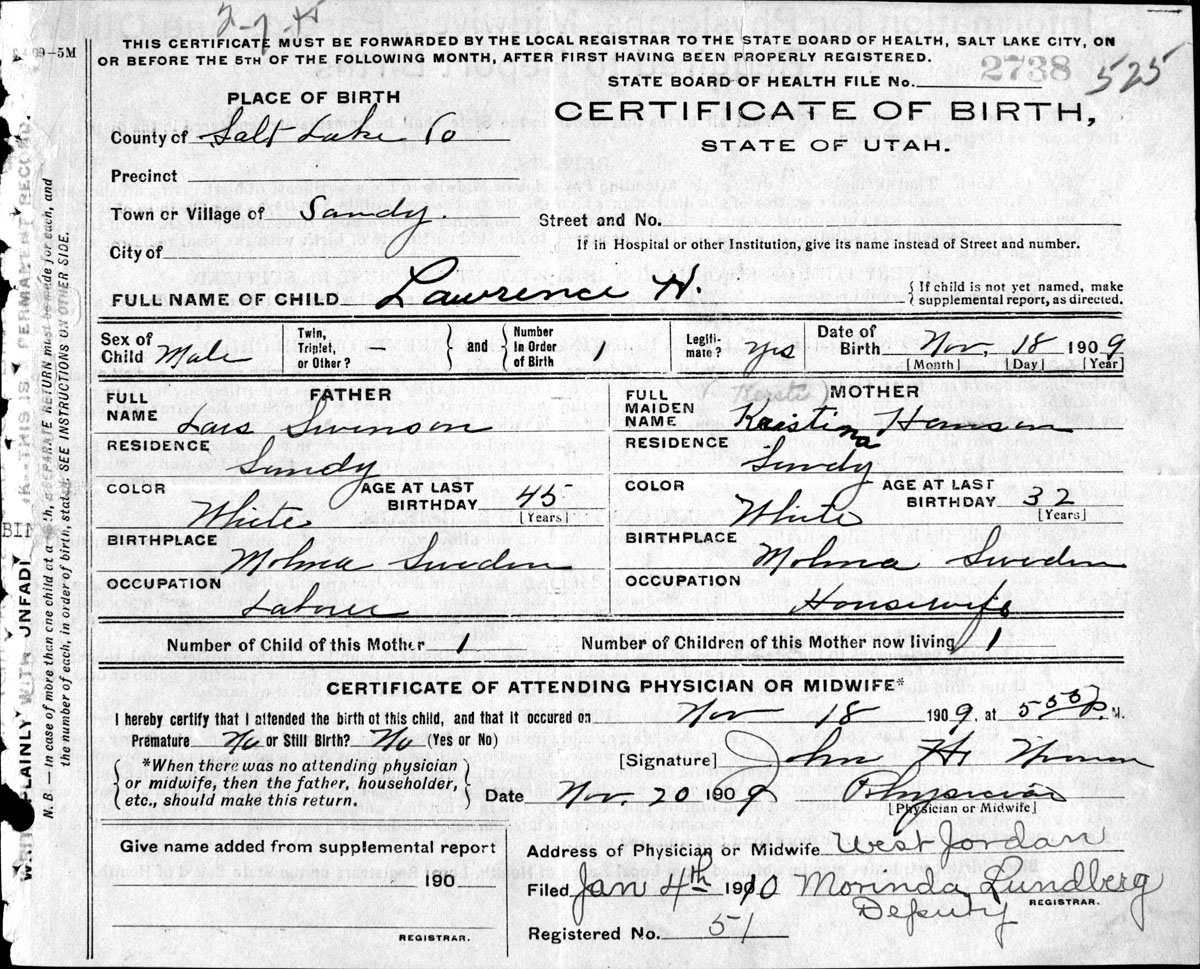 2-7-
09-5M
THIS CERTIFICATE MUST BE FORWARDED BY THE LOCAL REGISTRAR TO THE STATE BOARD OF HEALTH, SALT LAKE CITY, ON
OR BEFORE THE 5TH OF THE FOLLOWING MONTH, AFTER FIRST HAVING BEEN PROPERLY REGISTERED.
2738 525
STATE BOARD OF HEALTH FILE No.
PLACE OF BIRTH
CERTIFICATE OF BIRTH,
STATE OF UTAH.
County of Salt Lake Co
Precinct
Town or Village of Sandy.
Street and No.
City of
If in Hospital or other Institution, give its name instead of Street and number.
FULL NAME OF CHILD Lawrence H.
{ If child is not yet named, make
supplemental report, as directed.
Sex of Child Male
Twin, Triplet, or Other? —
} and {
Number in Order of Birth 1
Legiti-mate? yes
Date of Birth Nov, 18 1909
[Month] [Day] [Year]
FATHER
FULL NAME Lars Swenson
RESIDENCE Sandy
COLOR White
AGE AT LAST BIRTHDAY 45
[Years]
BIRTHPLACE Molma Sweden
OCCUPATION Laborer
MOTHER
Kersti)
FULL MAIDEN NAME Kristina Hanson
RESIDENCE Sandy
COLOR White
AGE AT LAST BIRTHDAY 32
[Years]
BIRTHPLACE Molma Sweden
OCCUPATION Housewife
Number of Child of this Mother 1 Number of Children of this Mother now living 1
CERTIFICATE OF ATTENDING PHYSICIAN OR MIDWIFE*
I hereby certify that I attended the birth of this child, and that it occured on Nov 18 1909, at 5 P. M.
Premature No or Still Birth? No (Yes or No)
[Signature] H.
{ *When there was no attending physician
or midwife, then the father, householder,
etc., should make this return. }
Date Nov. 20 1909 Physician
[Physician or Midwife]
Give name added from supplemental report
190
REGISTRAR.
Address of Physician or Midwife West Jordan
Filed Jan 4th 1910 Morinda Lundberg
Deputy REGISTRAR.
Registered No. 51
WRITE PLAINLY WITH UNFADI INK—THIS IS PERMANENT RECORD.
BIN
N. B.—In case of more than one child at a birth, SEPARATE RETURN must be made for each, and
the number of each, in order of birth, stated. SEE INSTRUCTIONS ON OTHER SIDE.